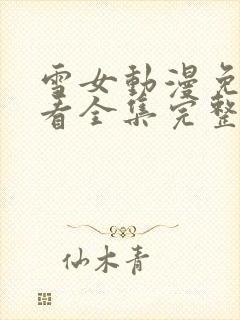 雪女動漫免
看全集完整
仙木青